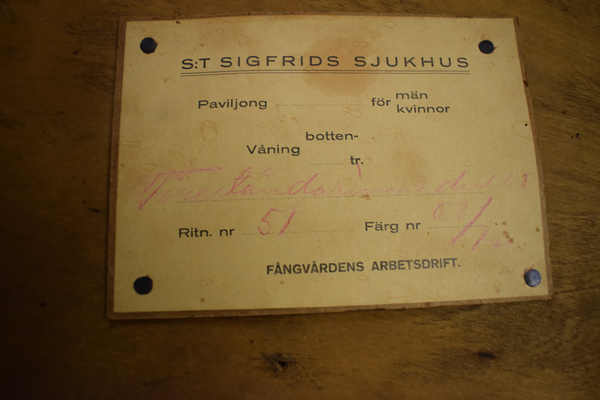 S:T SIGFRIDS SJUKHUS
Paviljong för män
kvinnor
botten-
Våning
tr.
Ritn. nr 51 Färg nr
FÅNGVÅRDENS ARBETSDRIFT.